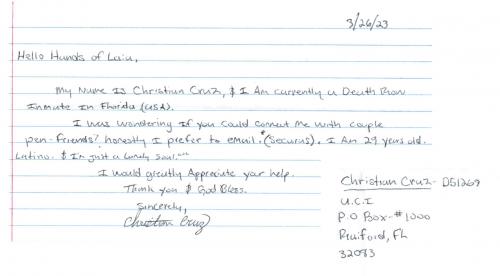 3/26/23
Hello Hands of Lain,
My Name Is Christian Cruz, & I Am currently a Death Row
Inmate In Florida (USA).
I was wondering If you could connect Me with couple
pen-friends? honestly I prefer to email.* (Securus). I Am 29 years old.
Latino. & I'm just a lonely soul.
I would greatly Appreciate your help.
Thank you & God Bless.
Sincerely,
Christian Cruz
Christian Cruz- D51269
U.C.I
P.O Box-#1000
Raiford, FL
32083